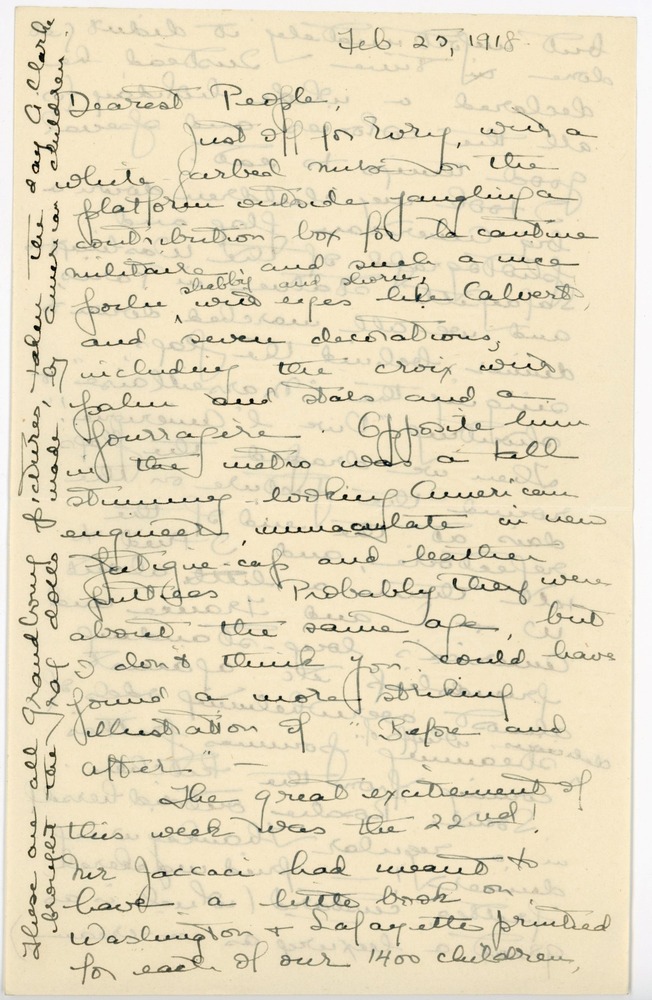 Feb 25, 1918.
Dearest People,
Just off for Evry, with a
white-garbed nurse on the
platform outside jangling a
contribution box for la cantine
militaire, and such a nice
shabby and shorn,
poilu with eyes like Calvert,
and seven decorations,
including the croix with
palm and stars and a
fourragere. Opposite him
in the metro was a tall
stunning-looking American
engineer, immaculate in new
fatigue-cap and leather
puttees. Probably they were
about the same age, but
I don't think you could have
found a more striking
illustration of "Before and
after" -
The great excitement of
this week was the 22nd!
Mr Jaccaci had meant to
have a little book on
Washington + Lafayette printed
for each of our 1400 children,
These are all Grandbourg pictures, taken the day A. Clark
brought the rag dolls made by American children.